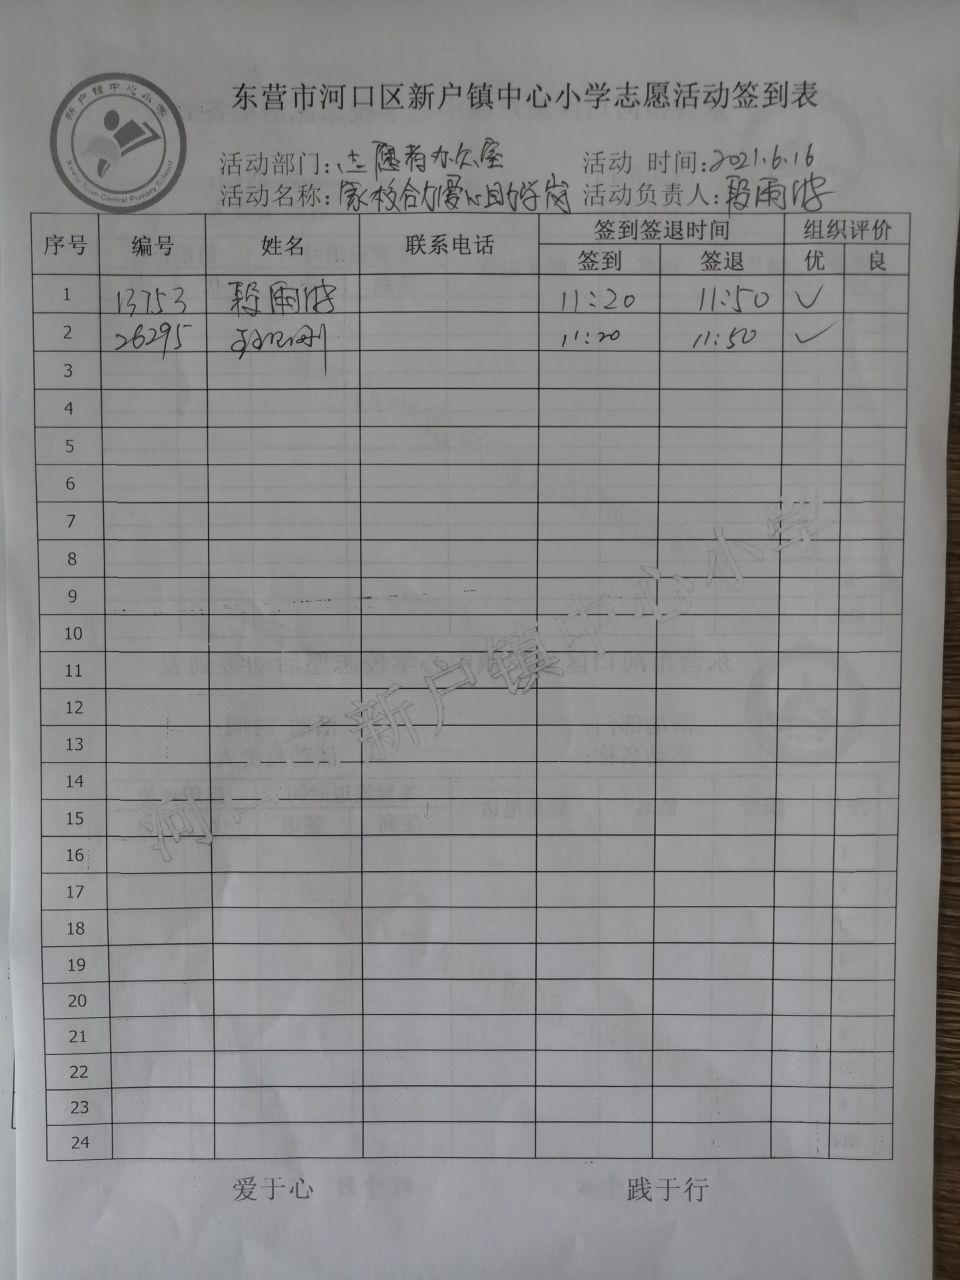 新户镇中心小学
Xinhu Town Central Primary School
东营市河口区新户镇中心小学志愿活动签到表
活动部门: 志愿者办公室 活动 时间: 2021.6.16
活动名称: 家校合力爱心助学岗 活动负责人: 段雨波
序号 编号 姓名 联系电话 签到签退时间 组织评价
签到 签退 优 良
1 13753 段雨波 11:20 11:50 ✓
2 26295 11:20 11:50 ✓
3
4
5
6
7
8
9
10
11
12
13
14
15
16
17
18
19
20
21
22
23
24
河口区新户镇中心小学
爱于心 践于行